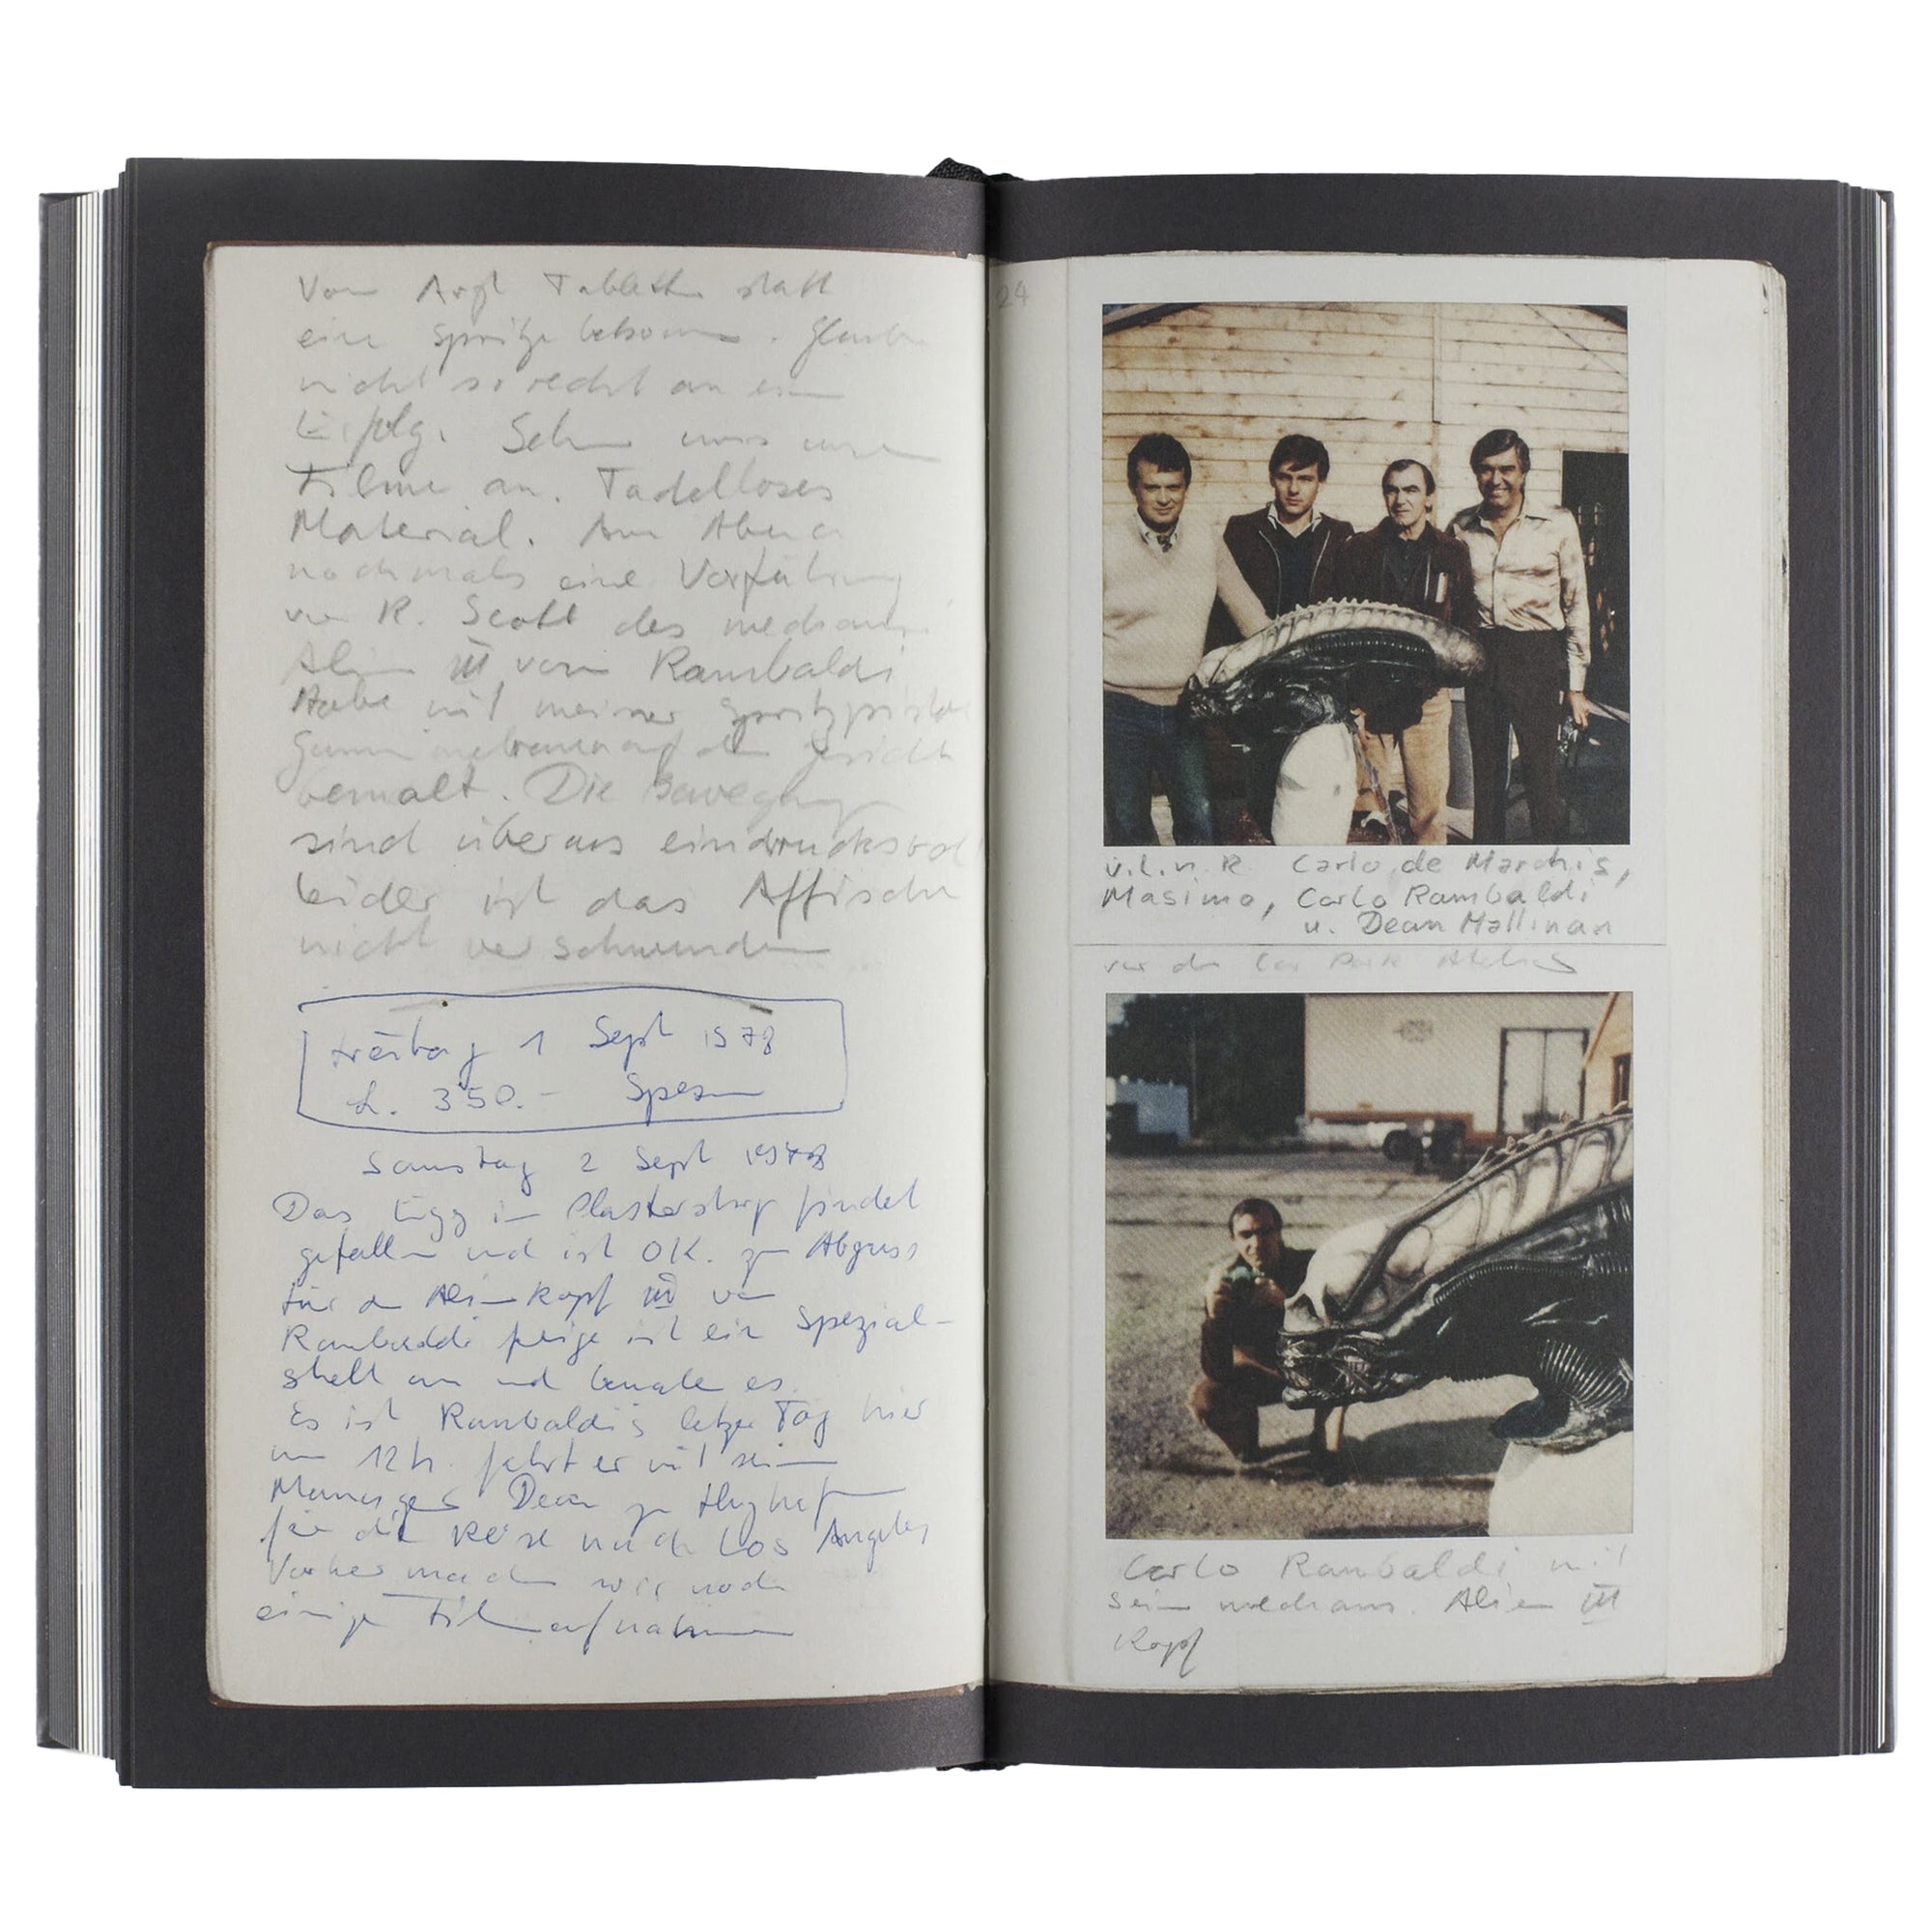 Vom Arzt Tabletten statt
eine Spritze bekommen. Glaube
nicht so recht an ein
Erfolg. Sehen uns unsere
Filme an. Tadelloses
Material. Am Abend
nochmals eine Vorführung
vor R. Scott des mechani.
Alien III von Rambaldi
Habe mit meiner Spritzpistole
Gummi auf das Gesicht
bemalt. Die Bewegung
sind überaus eindrucksvoll
leider ist das Äffische
nicht verschwunden
Freitag 1 Sept 1978
L. 350.- Spesen
Samstag 2 Sept 1978
Das Eigg im Plastershop findet
gefallen und ist OK. zum Abguss
für den Alienkopf III von
Rambaldi ein Spezial-
und bemale es.
Es ist Rambaldis letzer Tag hier
um 12 h. fahrt er mit sein
Manager Dean zum Flughafen
für die Reise nach Los Angeles
Vorher machen wir noch
einige Filmaufnahmen
24
v.l.n.R. Carlo de Marchis,
Masimo, Carlo Rambaldi
u. Dean Mallinan
vor den Car Park Ateliers
Carlo Rambaldi mit
sein mechans. Alien III
Kopf